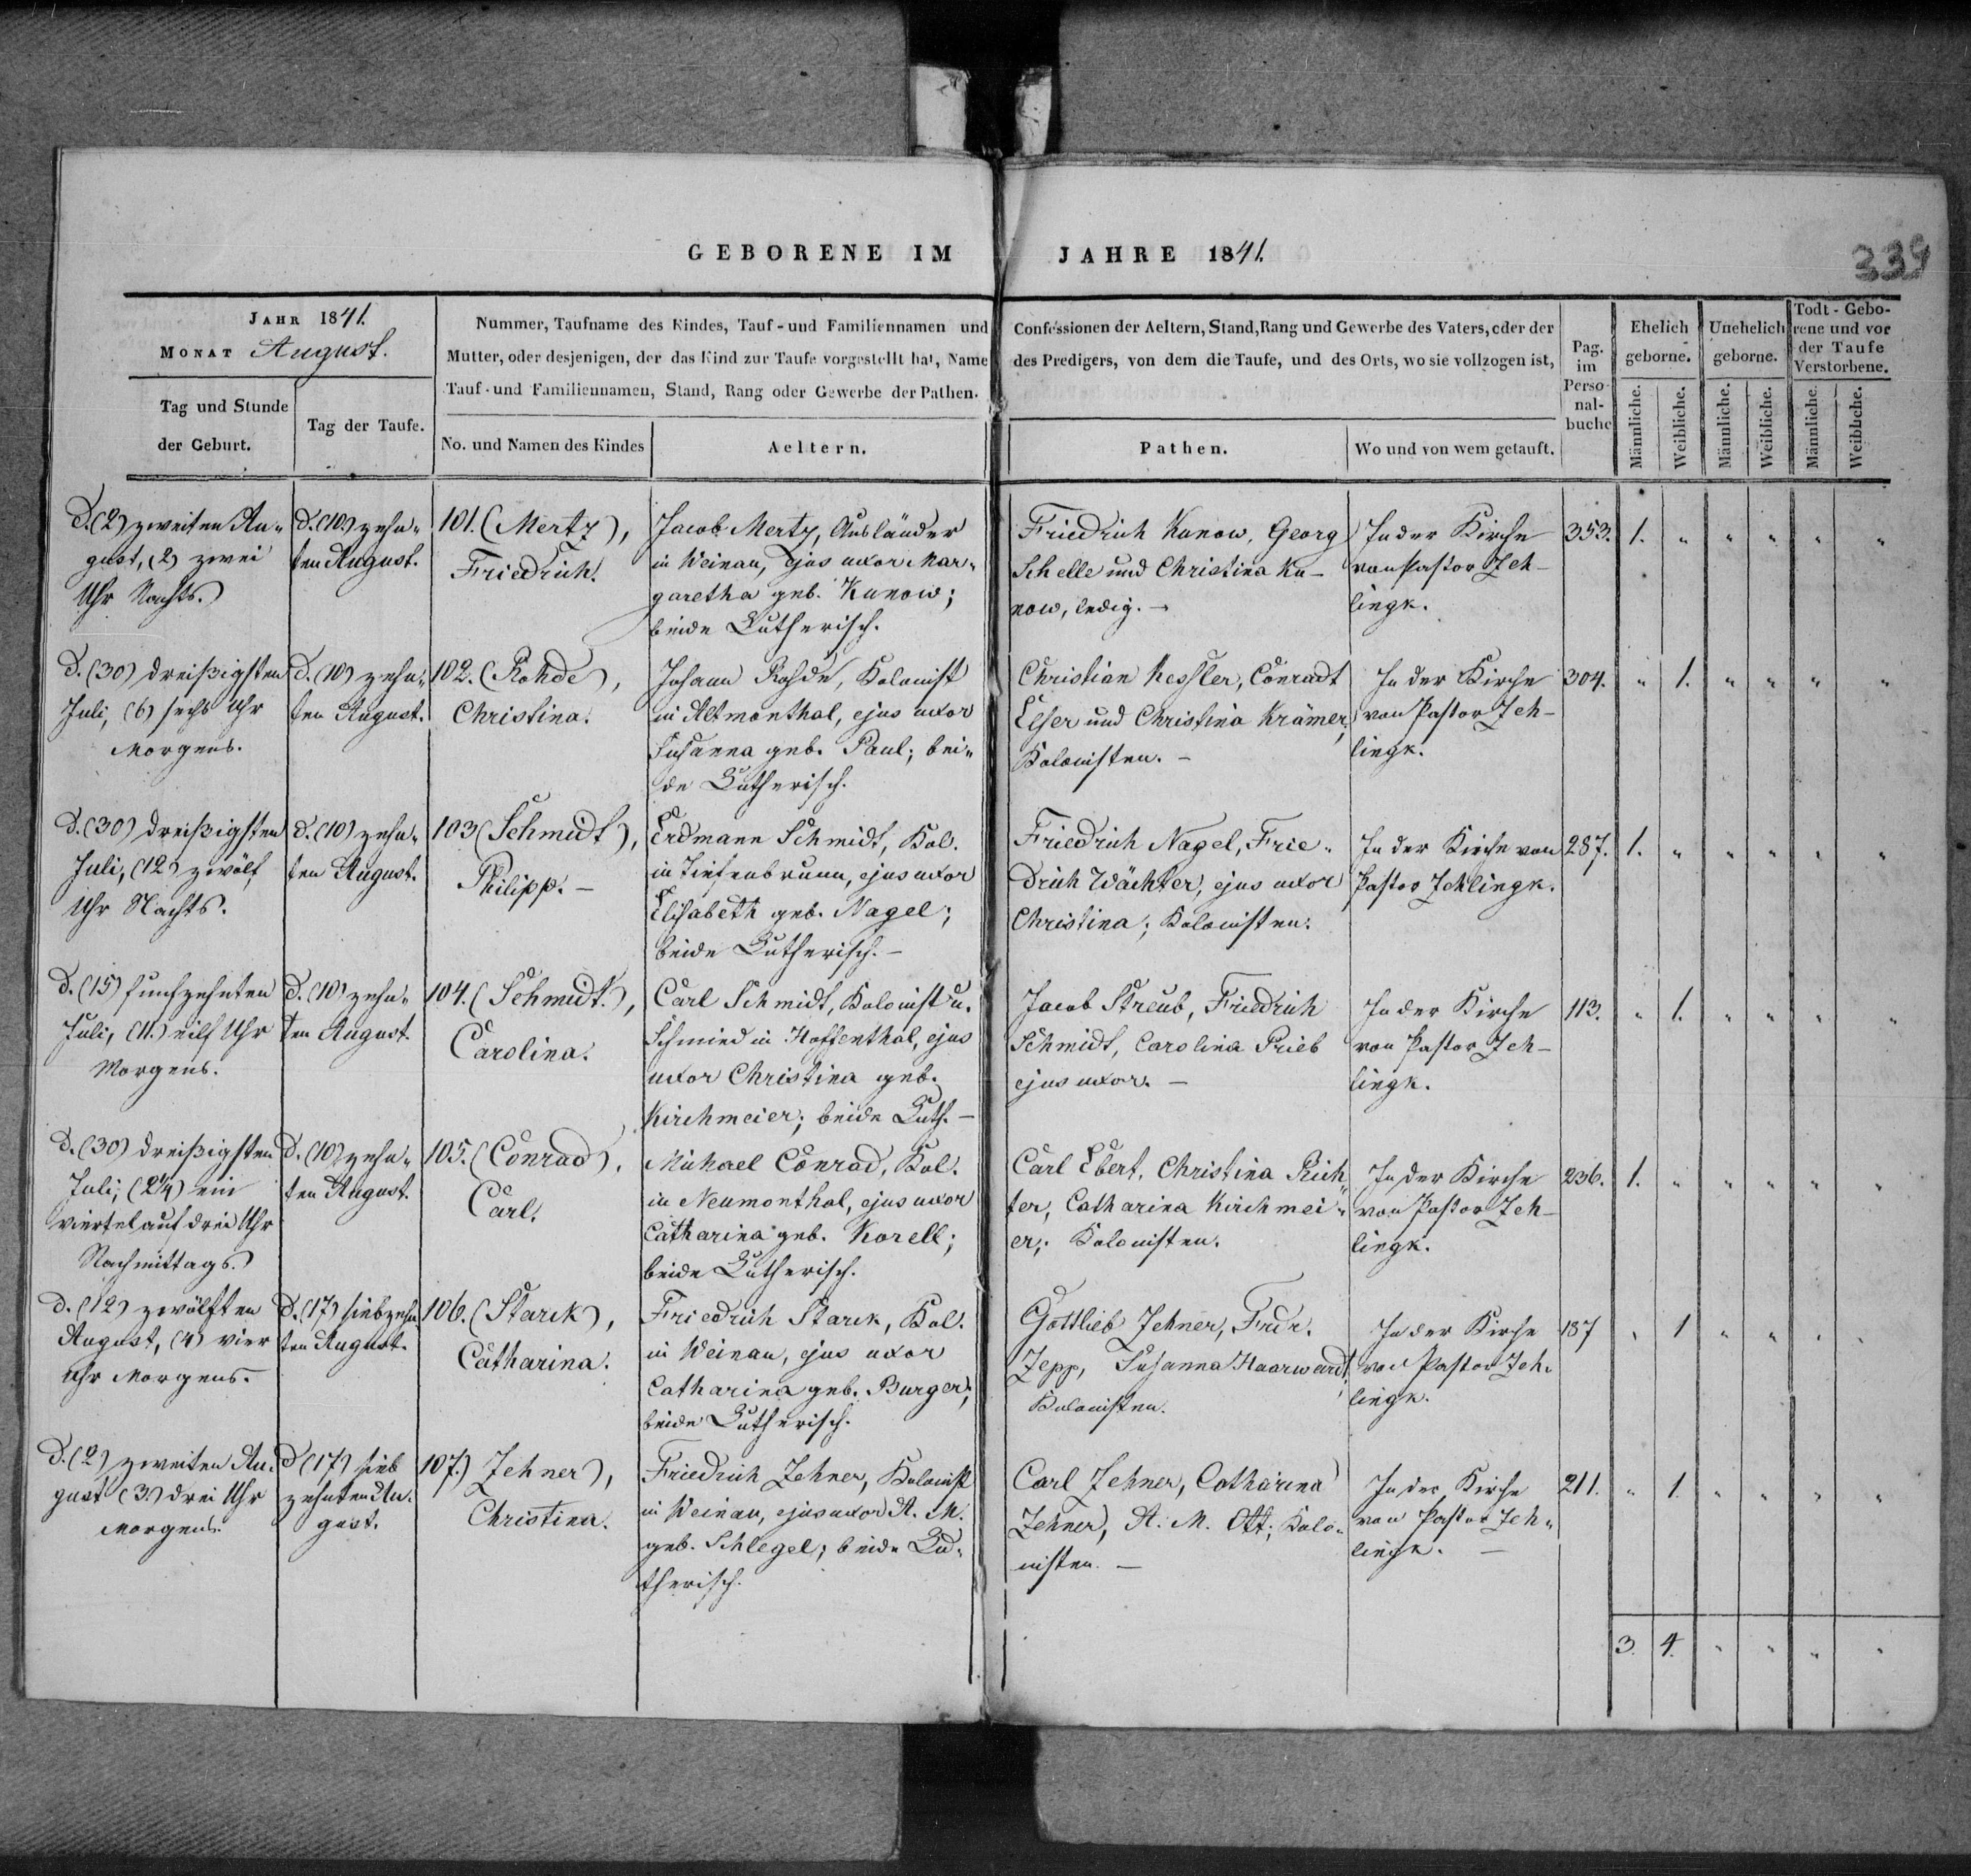 GEBORENE IM JAHRE 1841.
339
JAHR 1841.
MONAT August.
Tag und Stunde
der Geburt.
Tag der Taufe.
Nummer, Taufname des Kindes, Tauf- und Familiennamen und
Mutter, oder desjenigen, der das Kind zur Taufe vorgestellt hat, Name
Tauf- und Familiennamen, Stand, Rang oder Gewerbe der Pathen.
No. und Namen des Kindes
Aeltern.
Confessionen der Aeltern, Stand, Rang und Gewerbe des Vaters, oder der
des Predigers, von dem die Taufe, und des Orts, wo sie vollzogen ist,
Pathen.
Wo und von wem getauft.
Pag.
im
Perso-
nal-
buche
Ehelich
geborne.
Unehelich
geborne.
Todt-Gebo-
rene und vor
der Taufe
Verstorbene.
Männliche.
Weibliche.
Männliche.
Weibliche.
Männliche.
Weibliche.
D. (2) zweiten Au-
gust, (2) zwei
Uhr Nachts.
d. (10.) zehn-
ten August.
101. (Mertz),
Friedrich.
Jacob Mertz, Ausländer
in Weinau, ejus uxor Mar-
garetha geb. Kunow;
beide Lutherisch.
Friedrich Kunow, Georg
Schelle und Christina Ku-
now, ledig.
In der Kirche
von Pastor Zeh-
lingk.
353. 1. " " " " "
D. (30) dreißigsten
Juli, (6) sechs Uhr
Morgens.
D. (10) zehn-
ten August.
102. (Rohde),
Christina.
Johann Rohde, Kolonist
in Altmonthal, ejus uxor
Susanna geb. Paul; bei-
de Lutherisch.
Christian Kessler, Conradt
Eeser und Christina Krämer,
Kolonisten. -
In der Kirche
von Pastor Zeh-
lingk.
304. " 1. " " " "
D. (30) dreißigsten
Juli, (12) zwölf
Uhr Nachts.
d. (10) zehn-
ten August.
103 (Schmidt),
Philipp. -
Erdmann Schmidt, Kol.
in Tiefenbrunn, ejus uxor
Elisabeth geb. Nagel;
beide Lutherisch. -
Friedrich Nagel, Frie-
drich Wächter, ejus uxor
Christina; Kolonisten.
In der Kirche von
Pastor Zehlingk.
287. 1. " " " " "
d. (15) funfzehnten
Juli, (11.) eilf Uhr
Morgens.
D. (10) zehn-
ten August.
104. (Schmidt.),
Carolina.
Carl Schmidt, Kolonist u.
Schmied in Hoffenthal, ejus
uxor Christina geb.
Kirchmeier; beide Luth. -
Jacob Streub, Friedrich
Schmidt, Carolina Prieb
ejus uxor. -
In der Kirche
von Pastor Zeh-
lingk.
113. " 1. " " " "
d. (30) dreißigsten
Juli, (2 1/4) ein
viertel auf drei Uhr
Nachmittags.
D. (10) zehn-
ten August.
105. (Conrad),
Carl.
Michael Conrad, Kol.
in Neumonthal, ejus uxor
Catharina geb. Korell;
beide Lutherisch.
Carl Ebert, Christina Rich-
ter, Catharina Kirchmei-
er; Kolonisten.
In der Kirche
von Pastor Zeh-
lingk.
236. 1. " " " " "
d. (12) zwölften
August, (4) vier
Uhr Morgens.
D. (17) siebzehn
ten August.
106. (Starck),
Catharina.
Friedrich Starck, Kol.
in Weinau, ejus uxor
Catharina geb. Burger;
beide Lutherisch.
Gottlieb Zehner, Frdr.
Zepp, Susanna Haarwardt,
Kolonisten.
In der Kirche
von Pastor Zeh-
lingk.
187 " 1 " " " "
D. (2) zweiten Au-
gust (3.) drei Uhr
Morgens.
D (17) sieb
zehnten Au-
gust.
107.) Zehner),
Christina.
Friedrich Zehner, Kolonist
in Weinau, ejus uxor A. M.
geb. Schlegel; beide Lu-
therisch.
Carl Zehner, Catharina
Zehner, A. M. Ott; Kolo-
nisten. -
In der Kirche
von Pastor Zeh-
lingk. -
211. " 1. " " " "
3. 4. " " " "